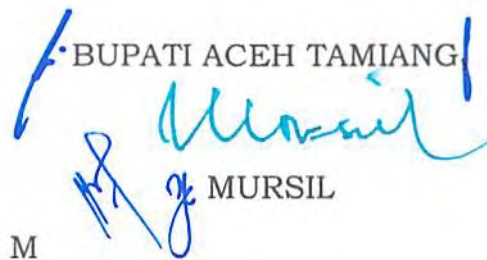 BUPATI ACEH TAMIANG
Mursil
MURSIL
M